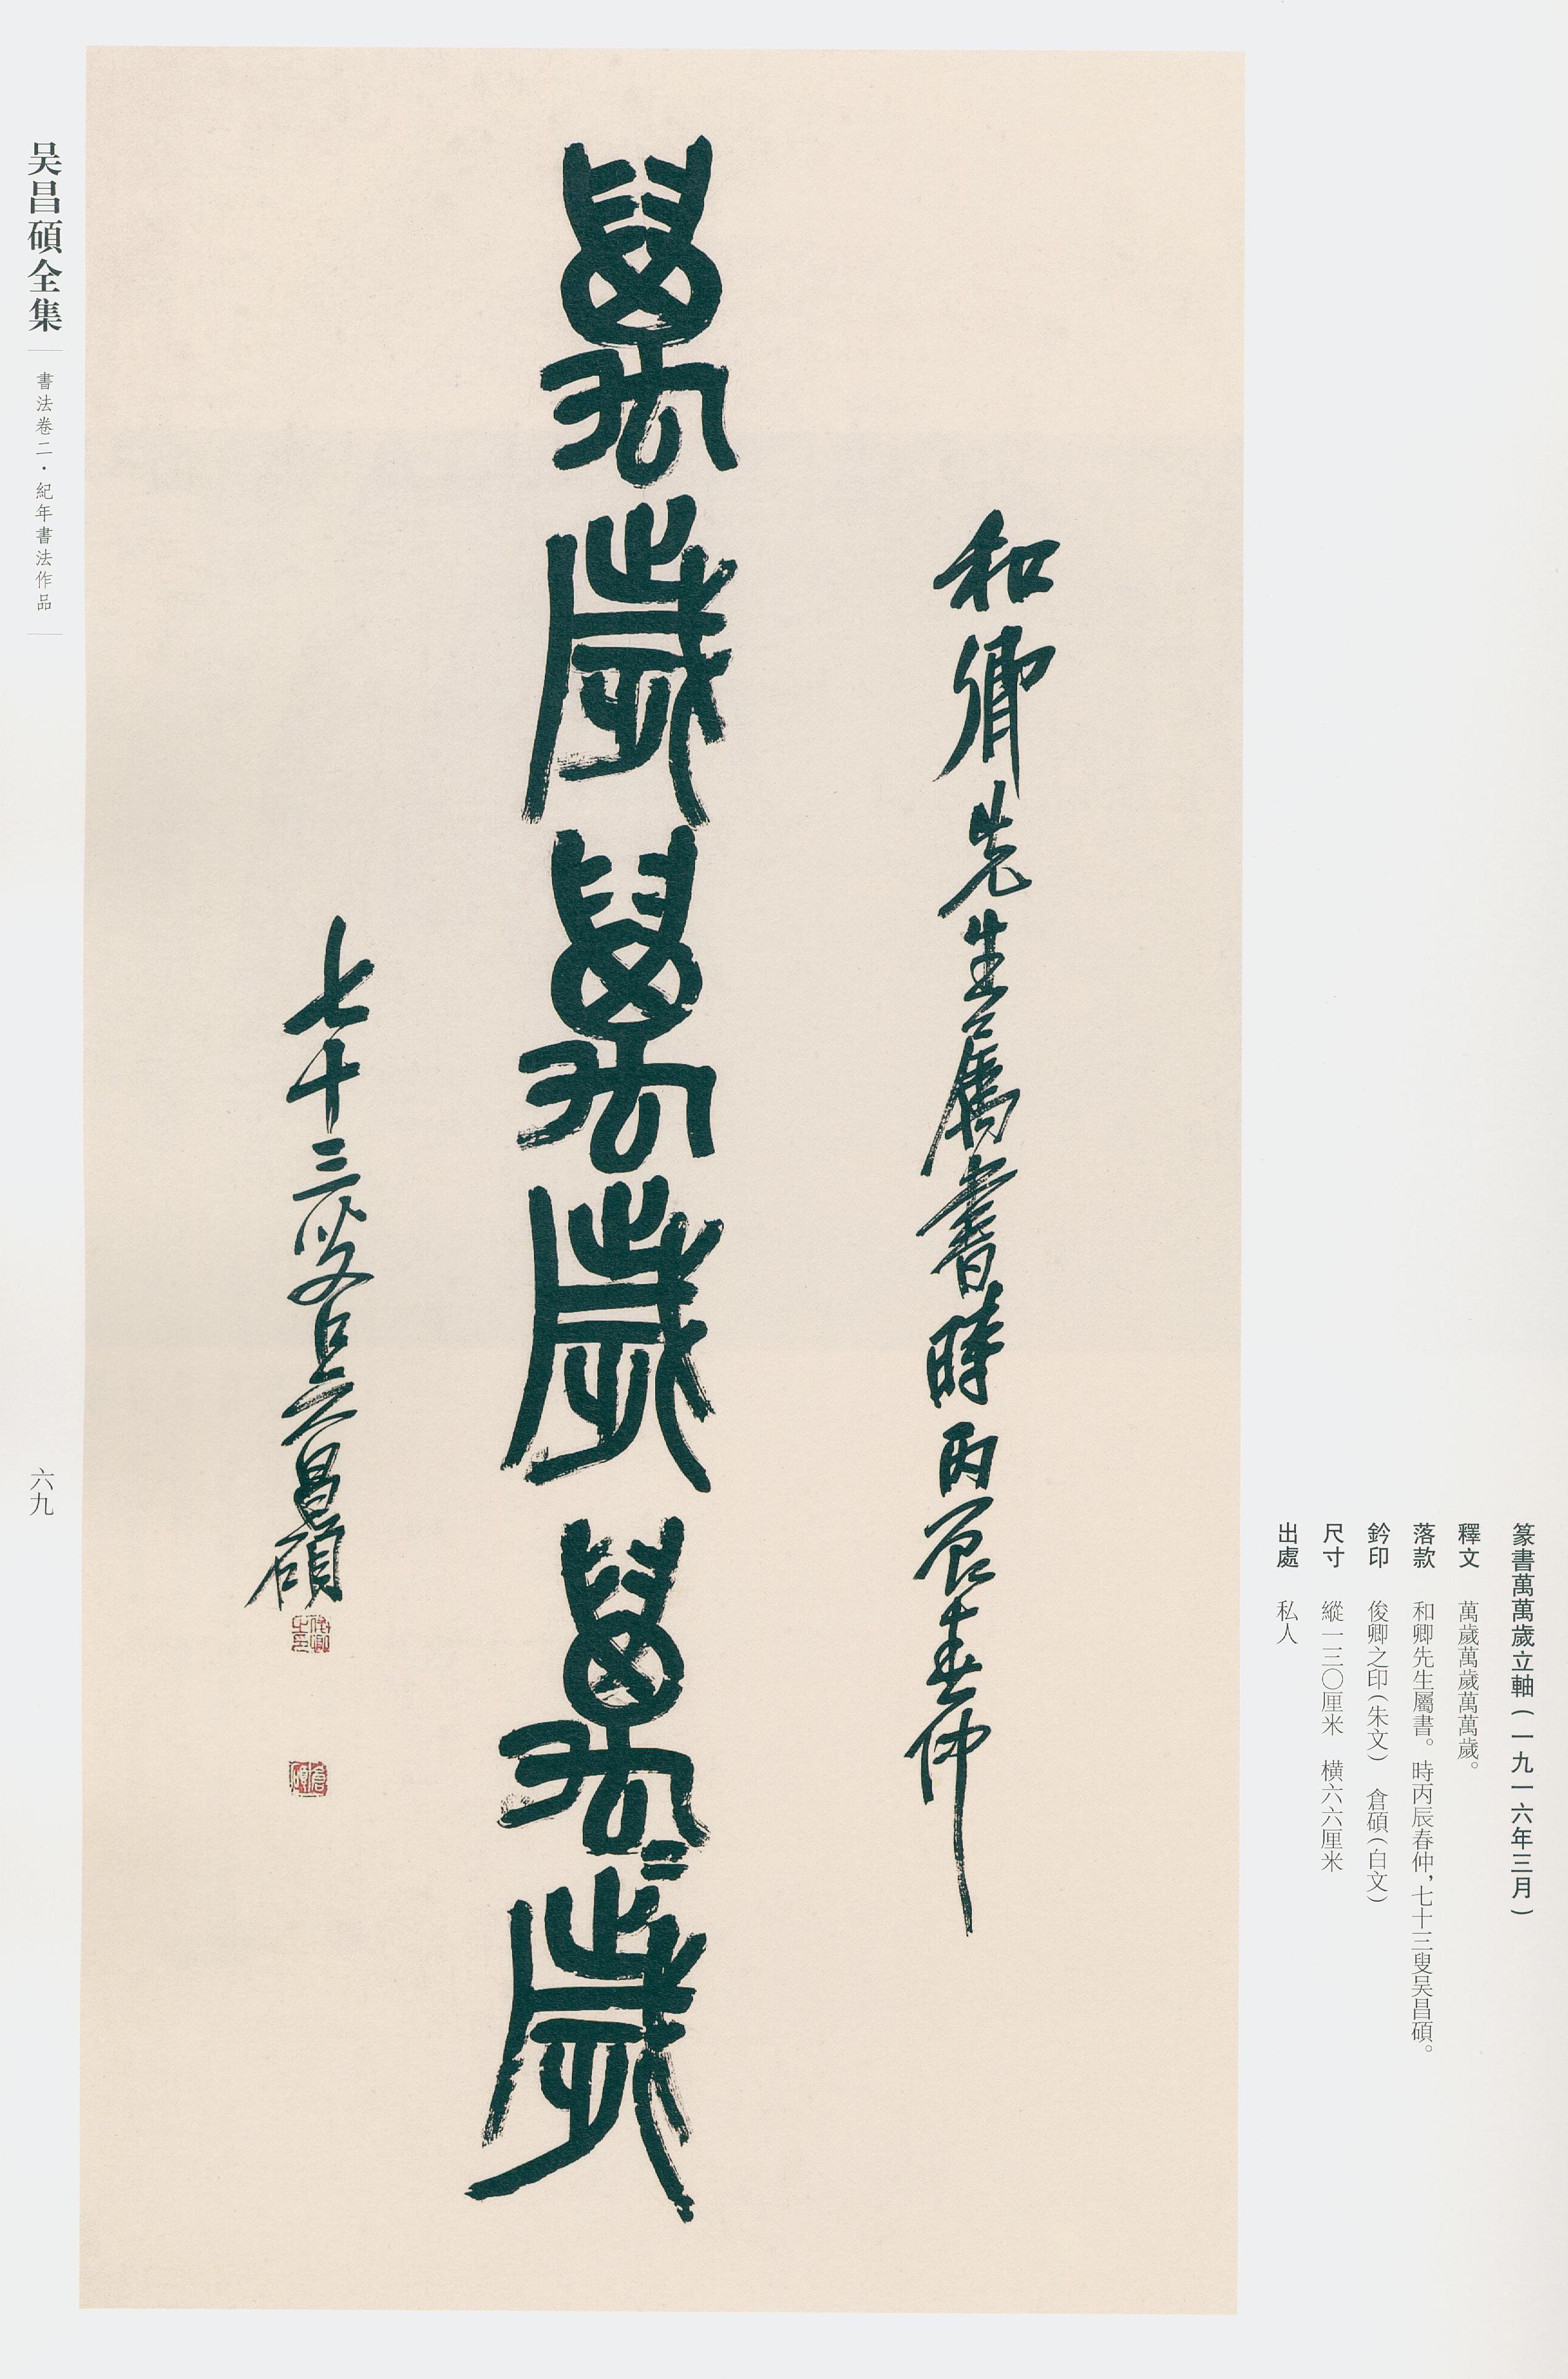 篆書萬萬歲立軸（一九一六年三月）
釋文　萬歲萬歲萬萬歲。
落款　和卿先生屬書。時丙辰春仲，七十三叟吴昌碩。
鈐印　俊卿之印（朱文）　倉碩（白文）
尺寸　縱一三〇厘米　橫六六厘米
出處　私人
和卿先生屬書時丙辰春仲
萬歲萬歲萬〻歲
七十三叟吴昌碩
俊卿之印
倉碩
吴昌碩全集
書法卷二·紀年書法作品
六九